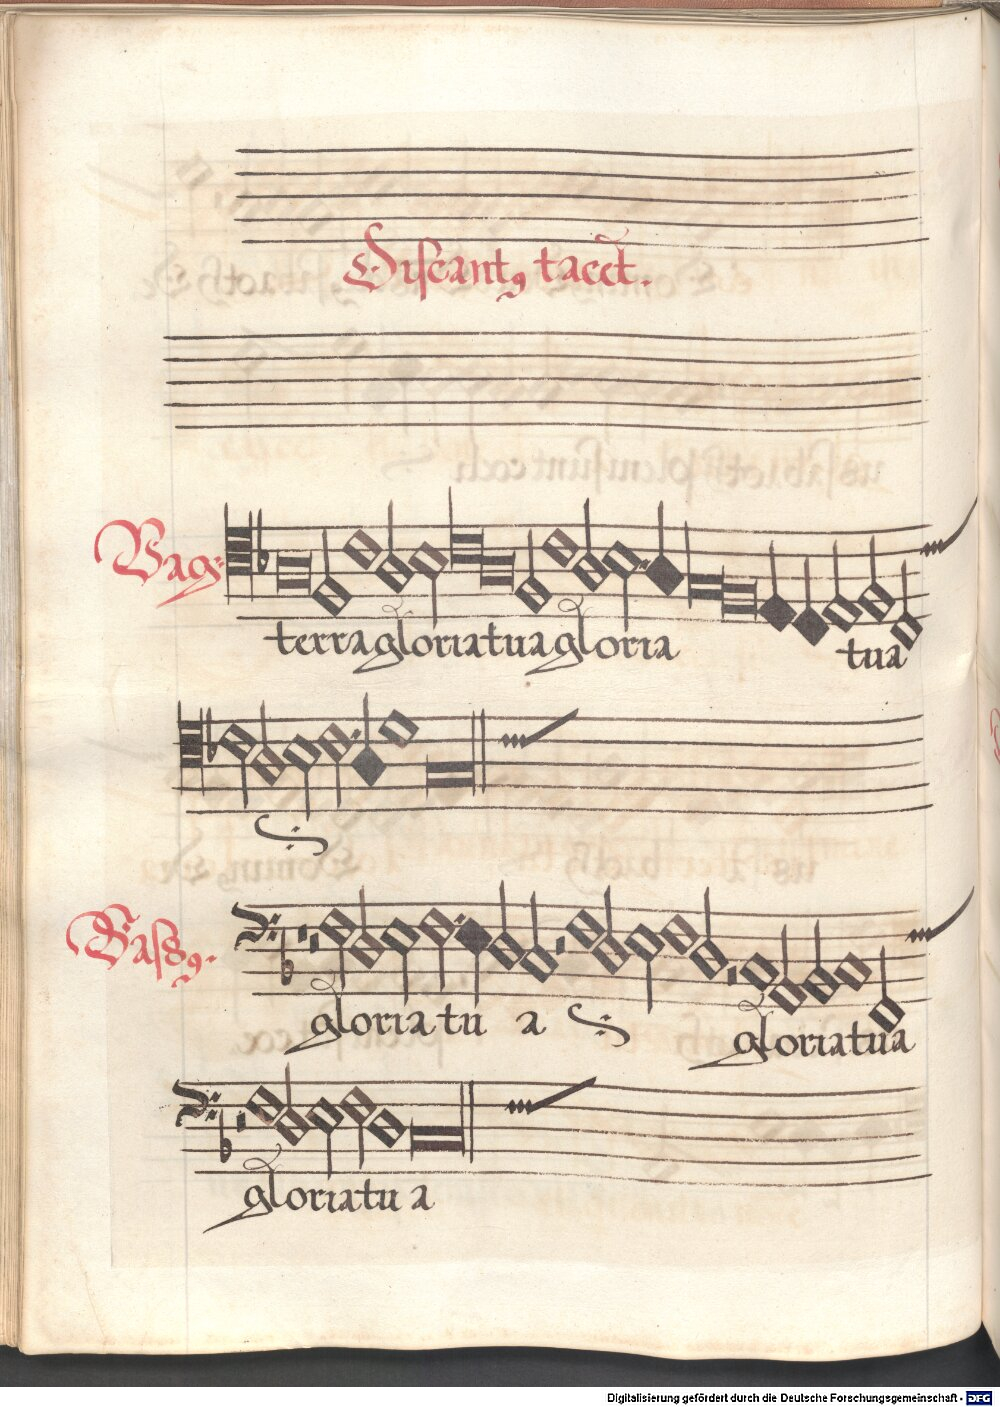 Discantꝰ tacet.
Vagꝰ
terra gloria tua gloria tua
Bassꝰ.
gloria tu a gloria tua
gloria tu a
Digitalisierung gefördert durch die Deutsche Forschungsgemeinschaft - DFG